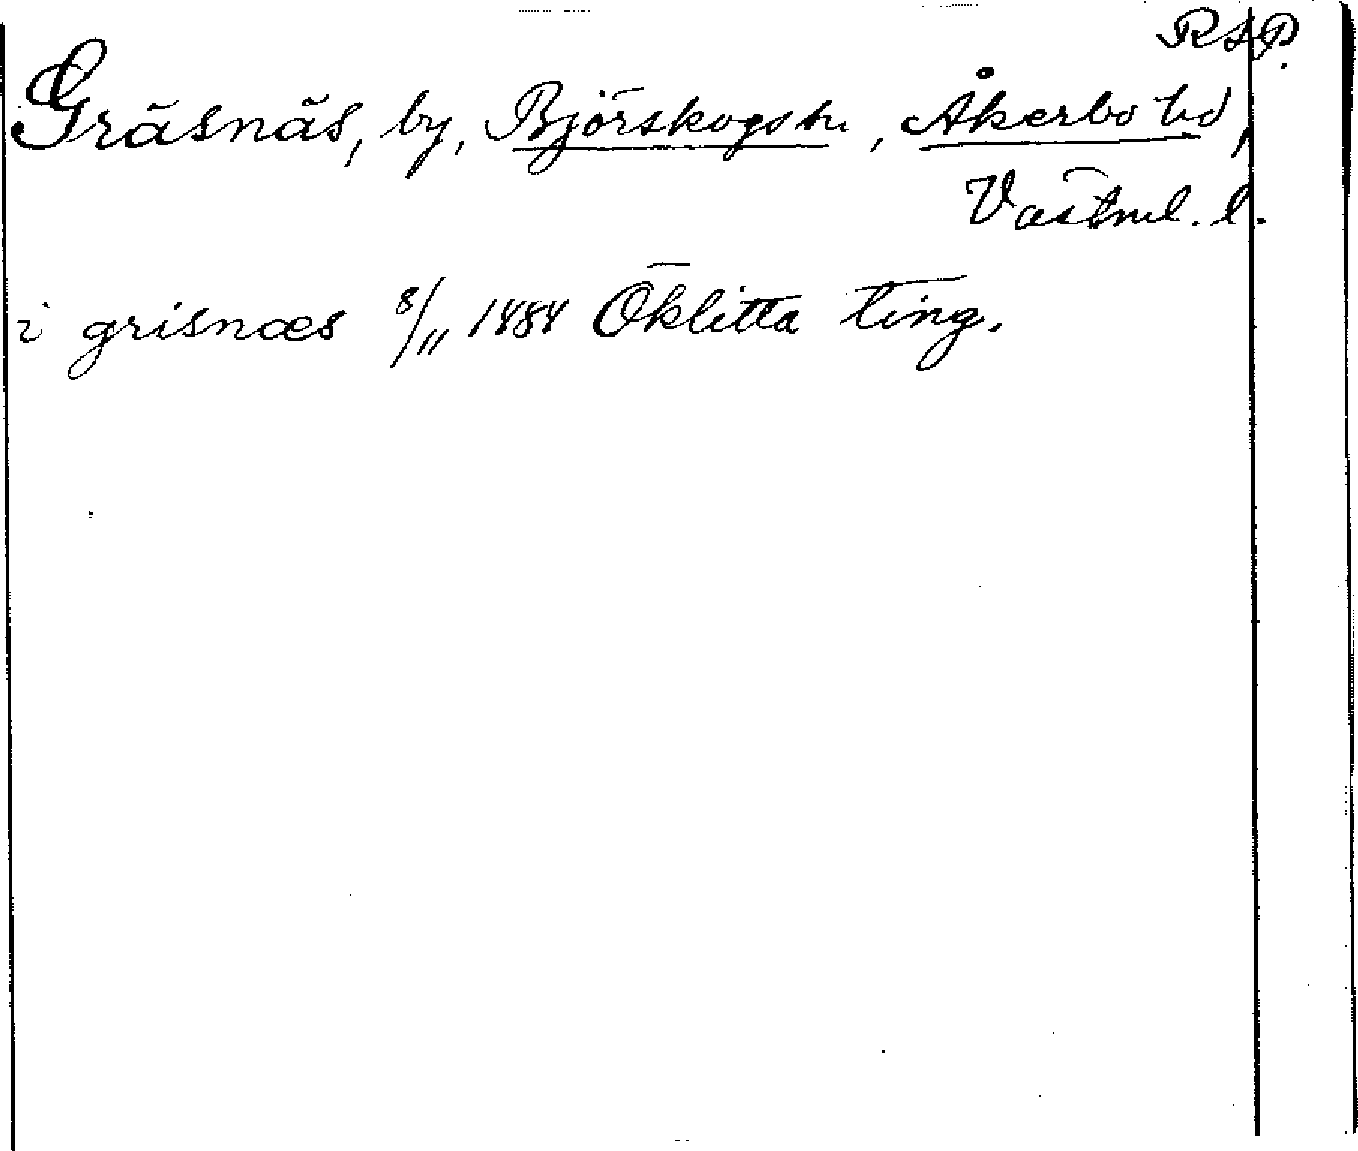 RSP.
Gräsnäs, by, Björskogs sn, Åkerbo hd,
Västml. l.
i grisnæs 8/11 1484 Öklitta ting.